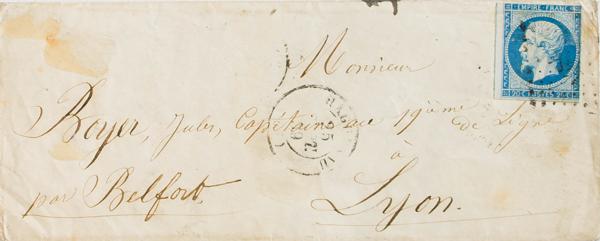 EMPIRE FRANC
Monsieur
Boyer, Jules, Capitaine au 19ième de Ligne
25
à
par Belfort. Lyon.